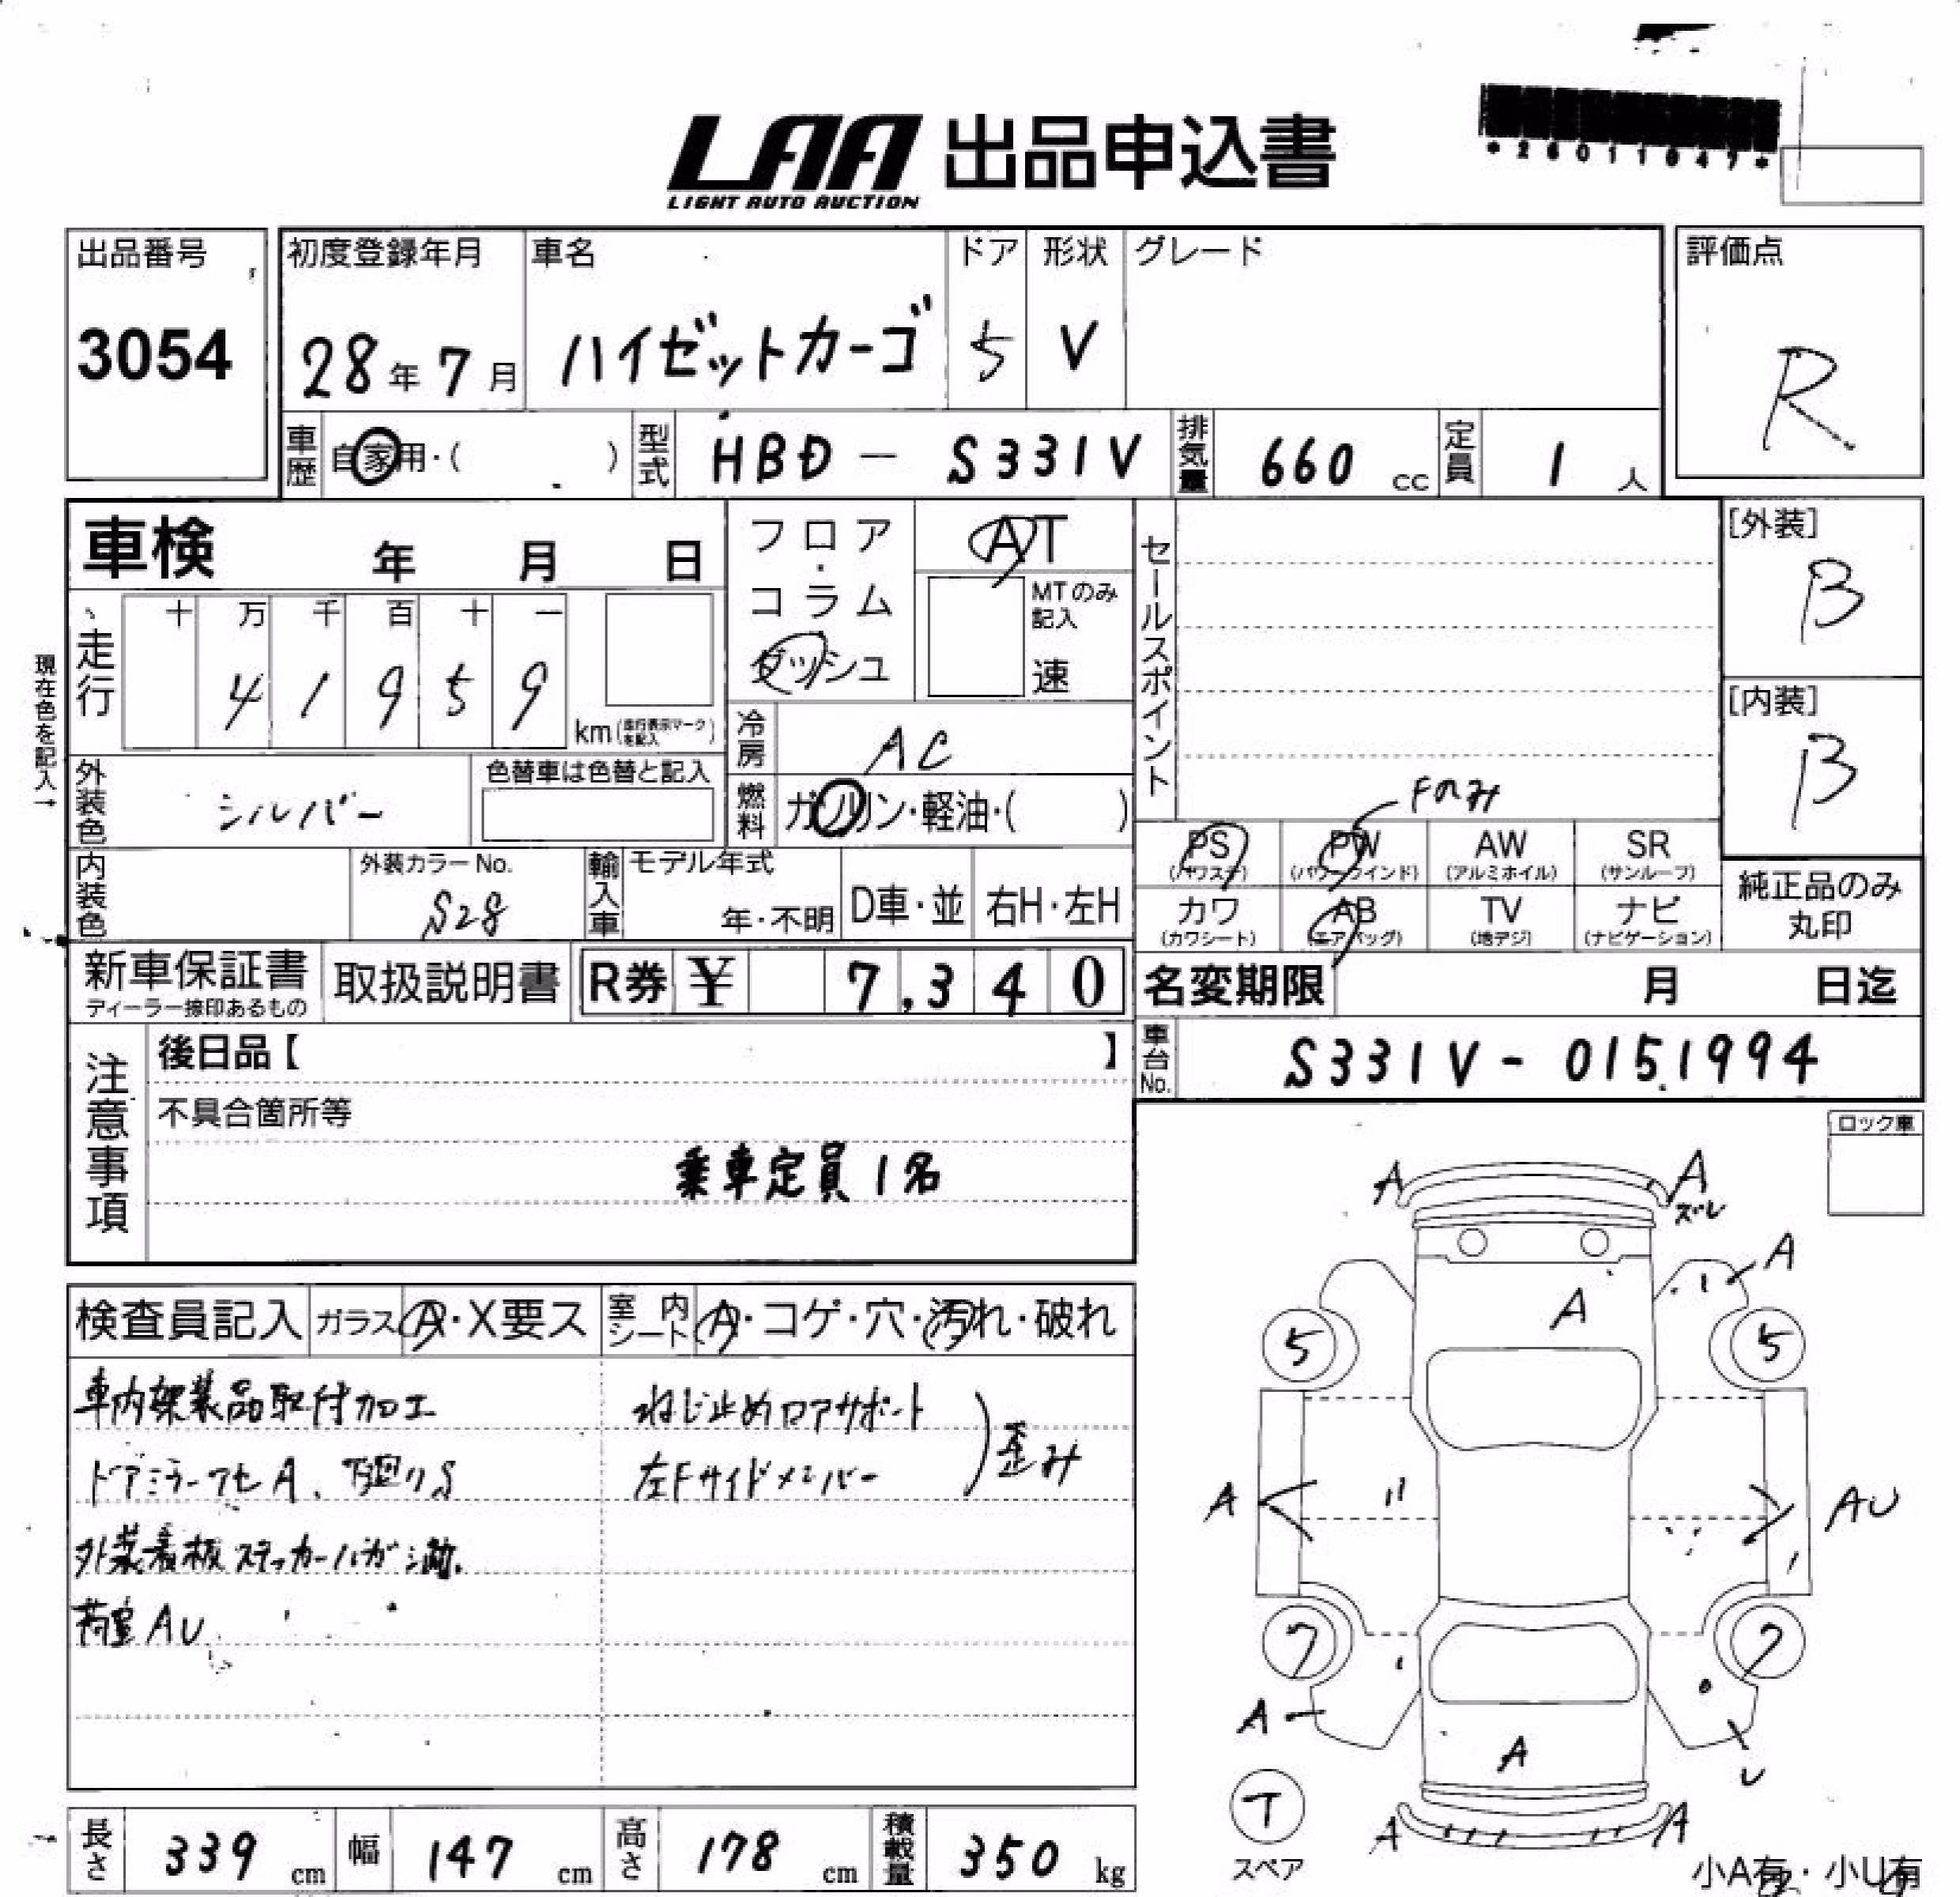 LAA 出品申込書
LIGHT AUTO AUCTION
*26011047*
出品番号
3054
初度登録年月
28年7月
車名
ハイゼットカーゴ
ドア
5
形状
V
グレード
評価点
R
車歴
自家用・( )
型式
HBD－S331V
排気量
660 cc
定員
1 人
車検 年 月 日
フロア・コラム
ダッシュ
AT
MTのみ記入
速
セールスポイント
[外装]
B
[内装]
B
現在色を記入→
走行
十 万 千 百 十 一
4 1 9 5 9
km (走行表示マークを記入)
冷房
AC
外装色
シルバー
色替車は色替と記入
燃料
ガソリン・軽油・( )
Fのみ
PS
(パワステ)
PW
(パワーウインド)
AW
(アルミホイル)
SR
(サンルーフ)
カワ
(カワシート)
AB
(エアバッグ)
TV
(地デジ)
ナビ
(ナビゲーション)
純正品のみ
丸印
内装色
外装カラーNo.
S28
輸入車
モデル年式
年・不明
D車・並
右H・左H
新車保証書
ディーラー捺印あるもの
取扱説明書
R券 ¥ 7,340
名変期限 月 日迄
車台No.
S331V-0151994
注意事項
後日品【 】
不具合箇所等
乗車定員1名
ロック車
検査員記入
ガラス A・X要ス
室内シート A・コゲ・穴・汚れ・破れ
車内架装品取付加工
ドアミラーフセA、下廻りS
外装看板ステッカーハガシ跡.
荷室AU
ねじ止めロアサポート
左Fサイドメンバー
歪み
A
A
ズレ
A
A
5
5
A
AU
7
7
A
A
U
T
スペア
A
A
小A有・小U有
長さ
339 cm
幅
147 cm
高さ
178 cm
積載量
350 kg